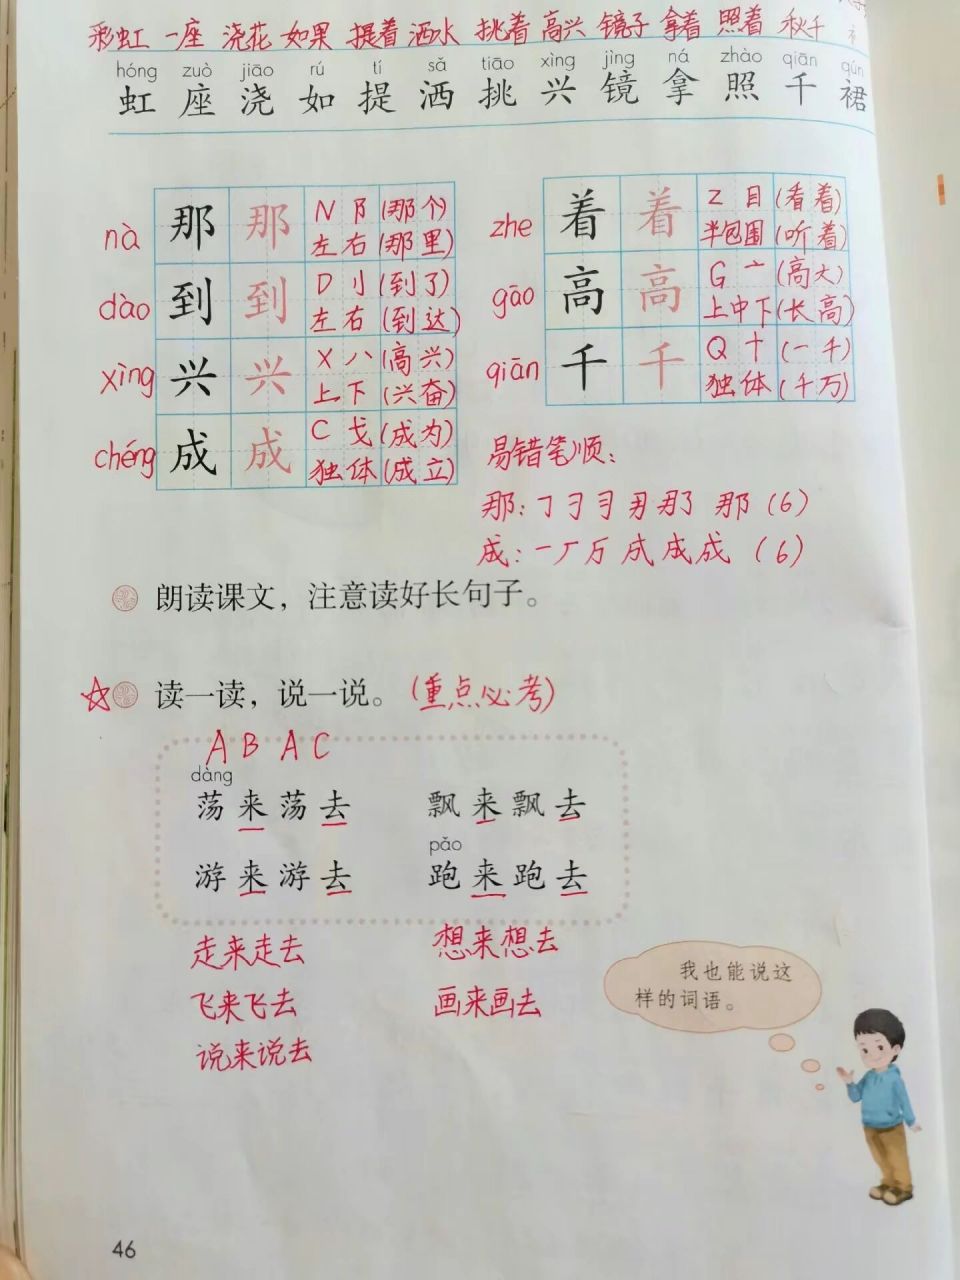 彩虹 一座 浇花 如果 提着 洒水 挑着 高兴 镜子 拿着 照着 秋千
hóng zuò jiāo rú tí sǎ tiāo xìng jìng ná zhào qiān qún
虹 座 浇 如 提 洒 挑 兴 镜 拿 照 千 裙
nà 那 那 N 阝 (那个)
左右 (那里)
dào 到 到 D 刂 (到了)
左右 (到达)
xìng 兴 兴 X 八 (高兴)
上下 (兴奋)
chéng 成 成 C 戈 (成为)
独体 (成立)
zhe 着 着 Z 目 (看着)
半包围 (听着)
gāo 高 高 G 亠 (高大)
上中下 (长高)
qiān 千 千 Q 十 (一千)
独体 (千万)
易错笔顺:
那: 那 (6)
成: 一 厂 成 (6)
朗读课文，注意读好长句子。
☆ 读一读，说一说。(重点必考)
A B A C
dàng
荡来荡去 飘来飘去
pǎo
游来游去 跑来跑去
走来走去 想来想去
飞来飞去 画来画去
说来说去
我也能说这
样的词语。
46